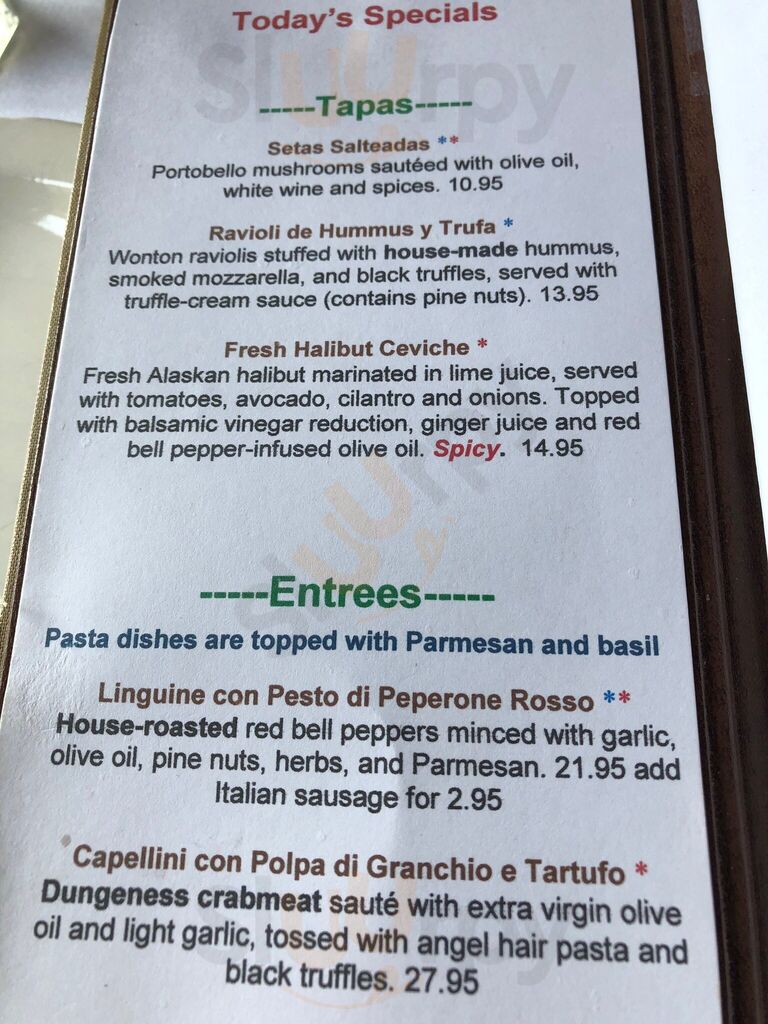 Today's Specials
-----Tapas-----
Setas Salteadas **
Portobello mushrooms sautéed with olive oil,
white wine and spices. 10.95
Ravioli de Hummus y Trufa *
Wonton raviolis stuffed with house-made hummus,
smoked mozzarella, and black truffles, served with
truffle-cream sauce (contains pine nuts). 13.95
Fresh Halibut Ceviche *
Fresh Alaskan halibut marinated in lime juice, served
with tomatoes, avocado, cilantro and onions. Topped
with balsamic vinegar reduction, ginger juice and red
bell pepper-infused olive oil. Spicy. 14.95
-----Entrees-----
Pasta dishes are topped with Parmesan and basil
Linguine con Pesto di Peperone Rosso **
House-roasted red bell peppers minced with garlic,
olive oil, pine nuts, herbs, and Parmesan. 21.95 add
Italian sausage for 2.95
Capellini con Polpa di Granchio e Tartufo *
Dungeness crabmeat sauté with extra virgin olive
oil and light garlic, tossed with angel hair pasta and
black truffles. 27.95
Sluurpy
Sluurpy
Sluurpy